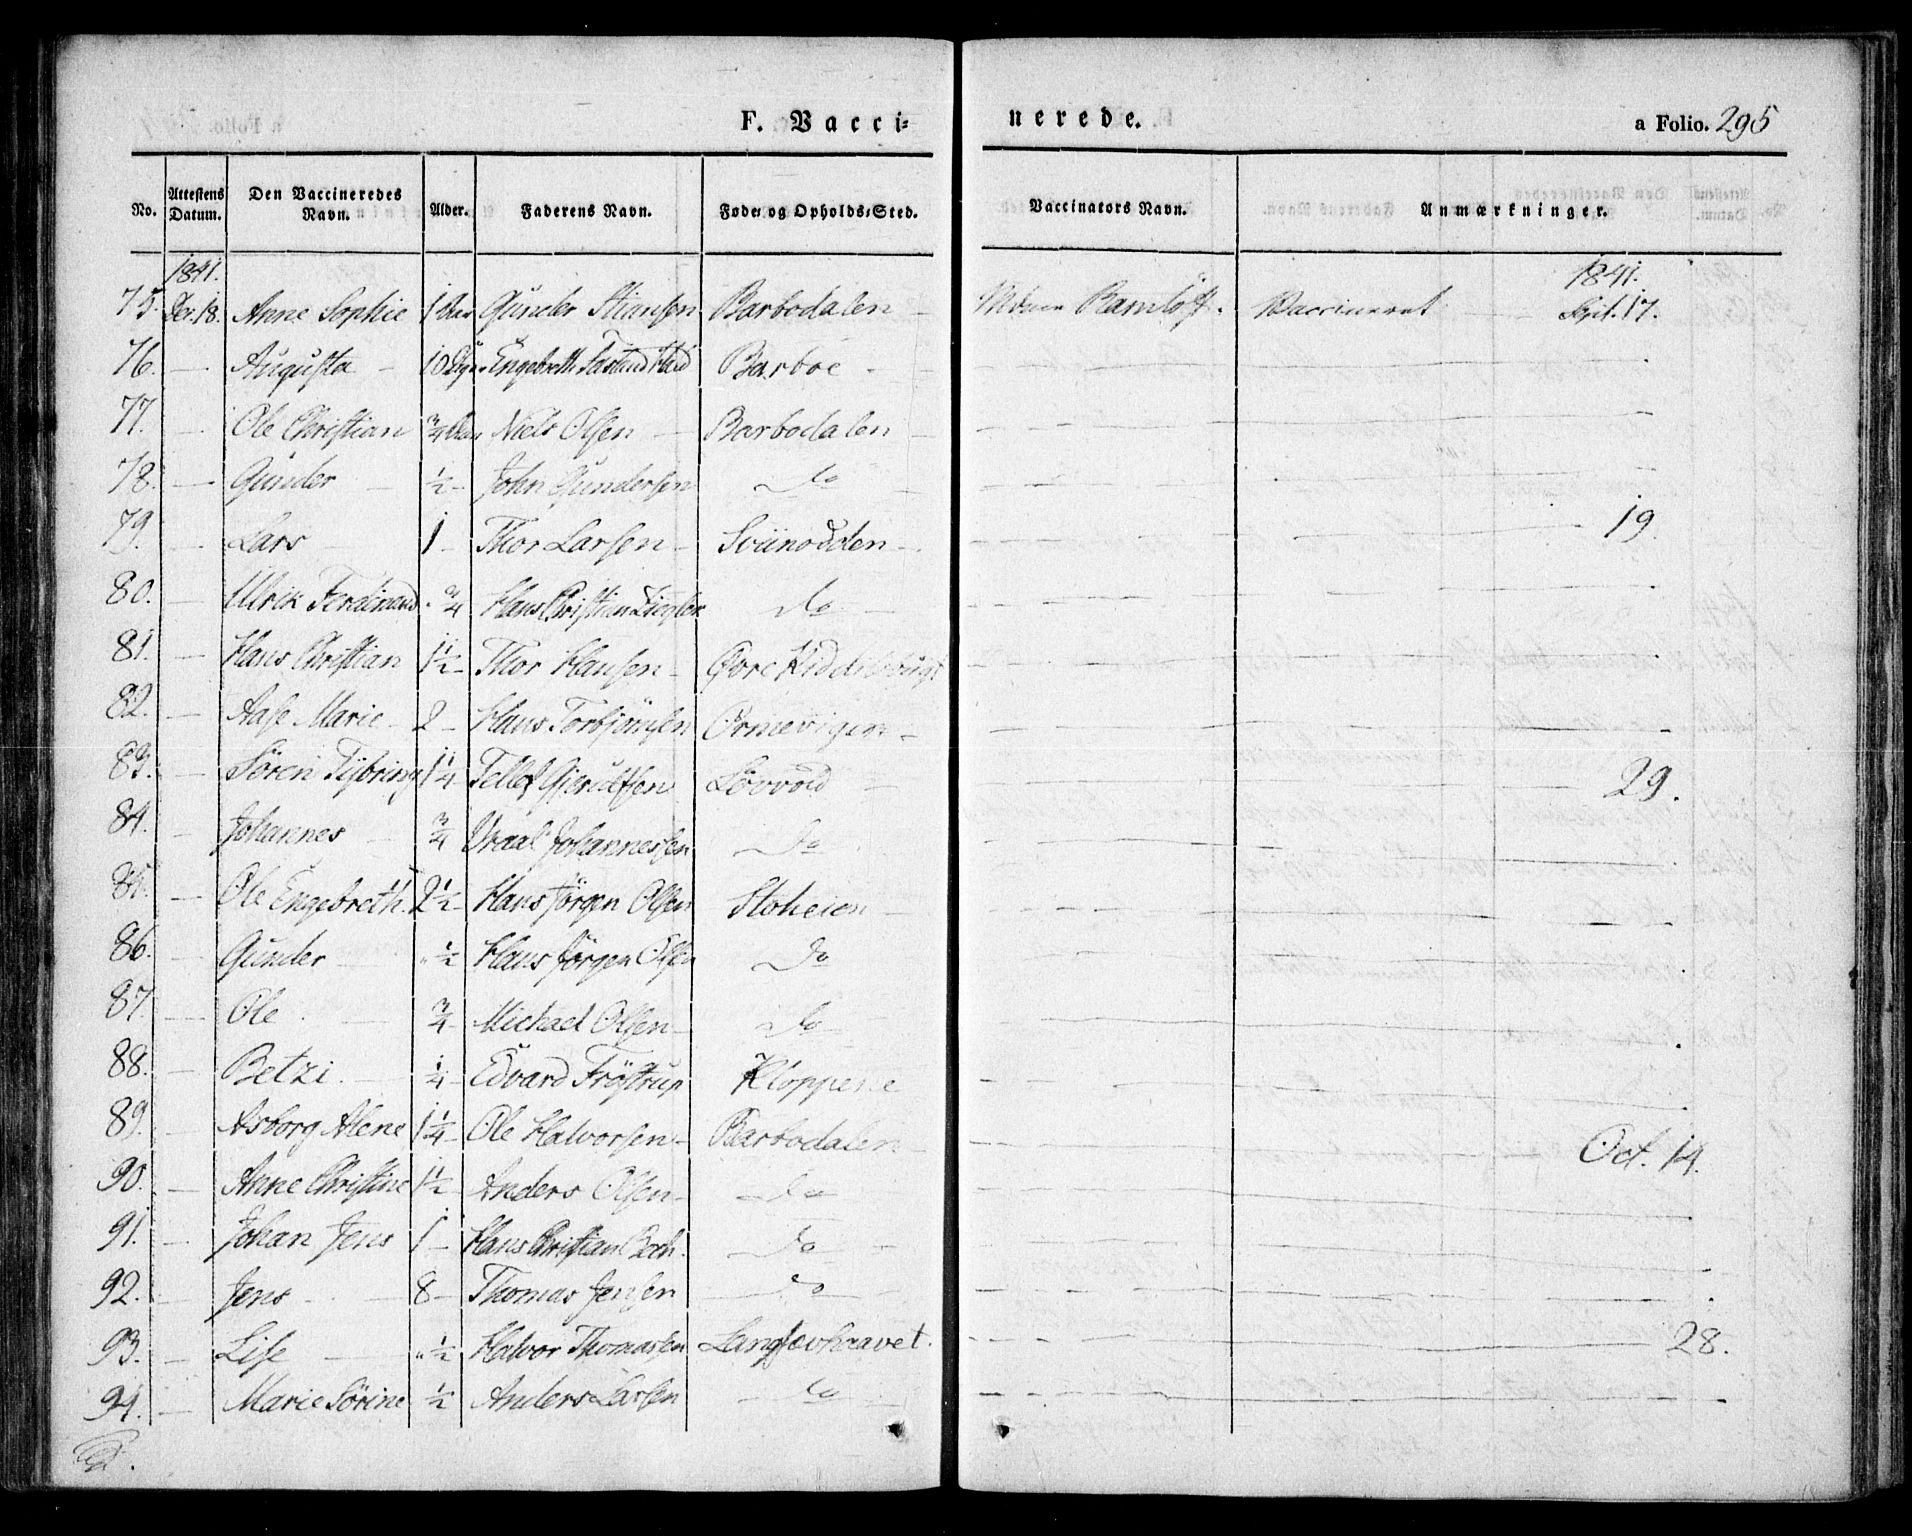 F. Vacci= nerede. a Folio. 295
No. Attestens Datum. Den Vaccineredes Navn. Alder. Faderens Navn. Føde- og Opholds-Sted. Vaccinators Navn. Anmærkninger.
1841. 1841.
75. 18. Anne Sophie 1 Gunder Stiansen Barbodalen Ramløff. Vaccineret Sept. 17.
76. — Augusta — 10 Engebreth Barboe
77. — Ole Christian 3/4 Niels Olsen — Barbodalen —
78. — Gunder — 1/2 — John Gundersen do
79. — Lars — 1 — Thor Larsen — Sviinodden — 19.
80. — Ulrik Ferdinand 3/4 Hans Christian Ziegler do —
81. — Hans Christian 1 1/2 — Thor Hansen — Øvre
82. — Aase Marie — 2 — Hans Torbjørnsen Ormevigen —
83. — Søren Tÿbring 1 1/4 Tellef Gjerulfsen Løvvold — 29.
84. — Johannes — 3/4 Vraal Johannessen do
85. — Ole Engebreth. 2 1/2 — Hans Jørgen Olsen Stoheien —
86. — Gunder — " 1/2 Hans Jørgen Olsen do
87. — Ole — 3/4 — Michael Olsen — do
88. — Betzi. — 1/4 — Edvard Frøstrup Kloppene
89. — Asborg Alene 1 1/4 — Ole Halvorsen — Barbodalen — Oct. 14.
90. — Anne Christine 1 1/2 Anders Olsen — do
91. — Johan Jens 1 — Hans Christian Boch. do —
92. — Jens — 8 — Thomas Jensen do
93. — Lise — " 1/2 Halvor Thomassen Langsævhaavet. 28.
94. — Marie Sørine 1/2 Anders Larsen do